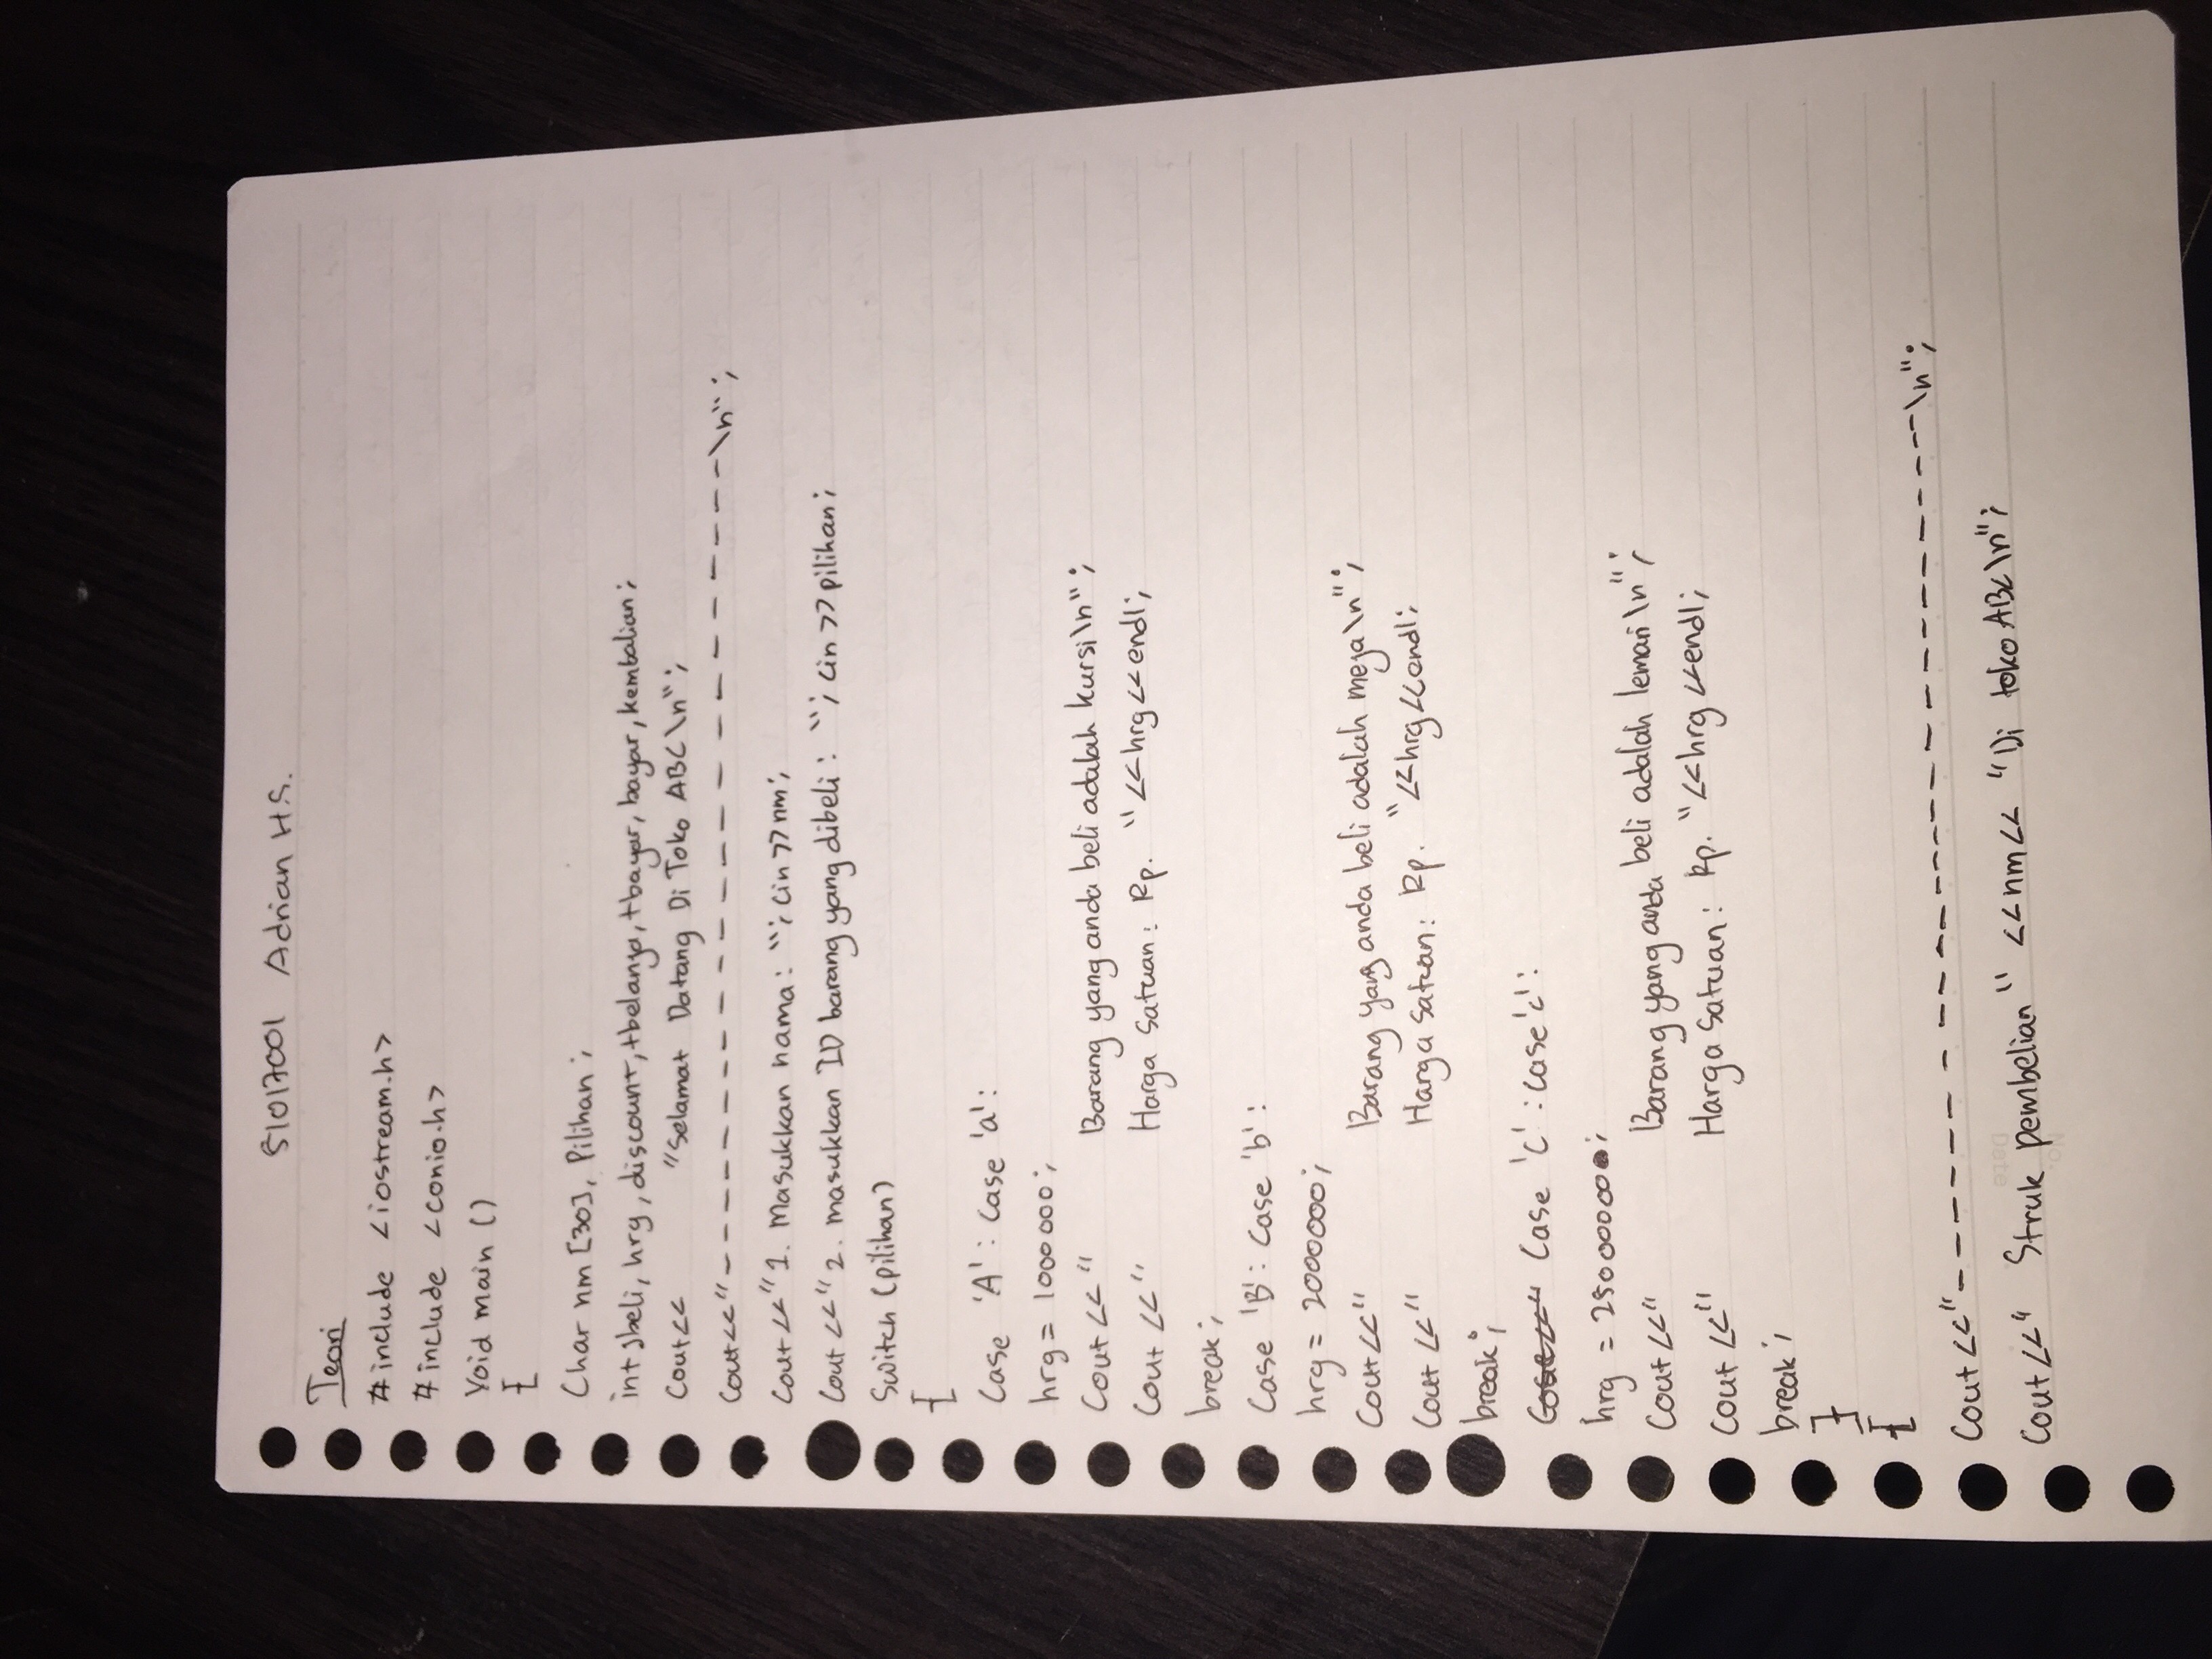 51017001 Adrian H.S.
Teori
#include <iostream.h>
#include <conio.h>
Void main ()
{
Char nm [30], Pilihan;
int jbeli, hrg, discount, tbelanja, tbayar, bayar, kembalian;
Cout<< "Selamat Datang Di Toko ABC\n";
Cout<<"------------------------\n";
Cout<<"1. Masukkan nama: "; Cin>>nm;
Cout<<"2. masukkan ID barang yang dibeli: "; Cin>>pilihan;
Switch (pilihan)
{
Case 'A': Case 'a':
hrg= 1000000;
Cout<<" Barang yang anda beli adalah kursi\n";
Cout<<" Harga Satuan: Rp. "<<hrg<<endl;
break;
Case 'B': Case 'b':
hrg= 2000000;
Cout<<" Barang yang anda beli adalah meja\n";
Cout<<" Harga Satuan: Rp. "<<hrg<<endl;
break;
Case 'C': Case 'c':
hrg =
Cout<<" Barang yang anda beli adalah lemari\n";
Cout<<" Harga Satuan: Rp. "<<hrg<<endl;
break;
}
{
Cout<<"------------------------\n";
Cout<<" Struk pembelian " <<nm<< "Di toko ABC\n";
Date
No.